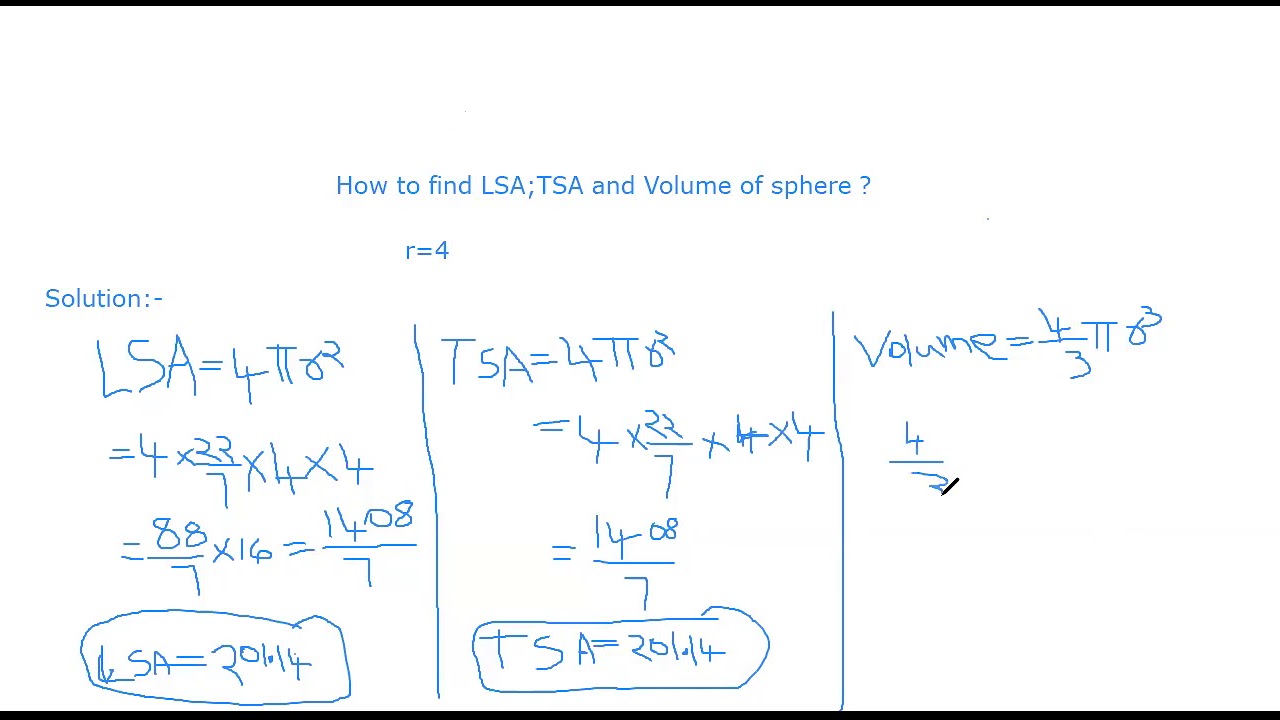 How to find LSA;TSA and Volume of sphere ?
r=4
Solution:-
LSA=4πr²
=4×22/7×4×4
=88/7×16=1408/7
LSA=201.14
TSA=4πr²
=4×22/7×4×4
=1408/7
TSA=201.14
Volume=4/3πr³
4/3